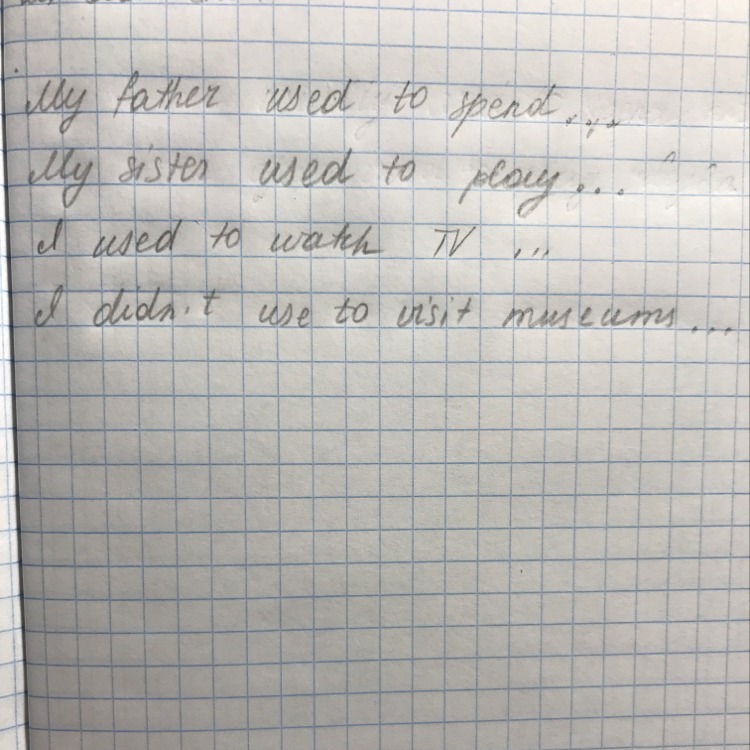 My father used to spend...
My sister used to play...
I used to watch TV ...
I didn't use to visit museums...